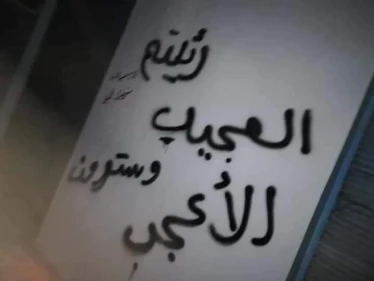 رئيتم
العجيب
وسترون
الأعجب